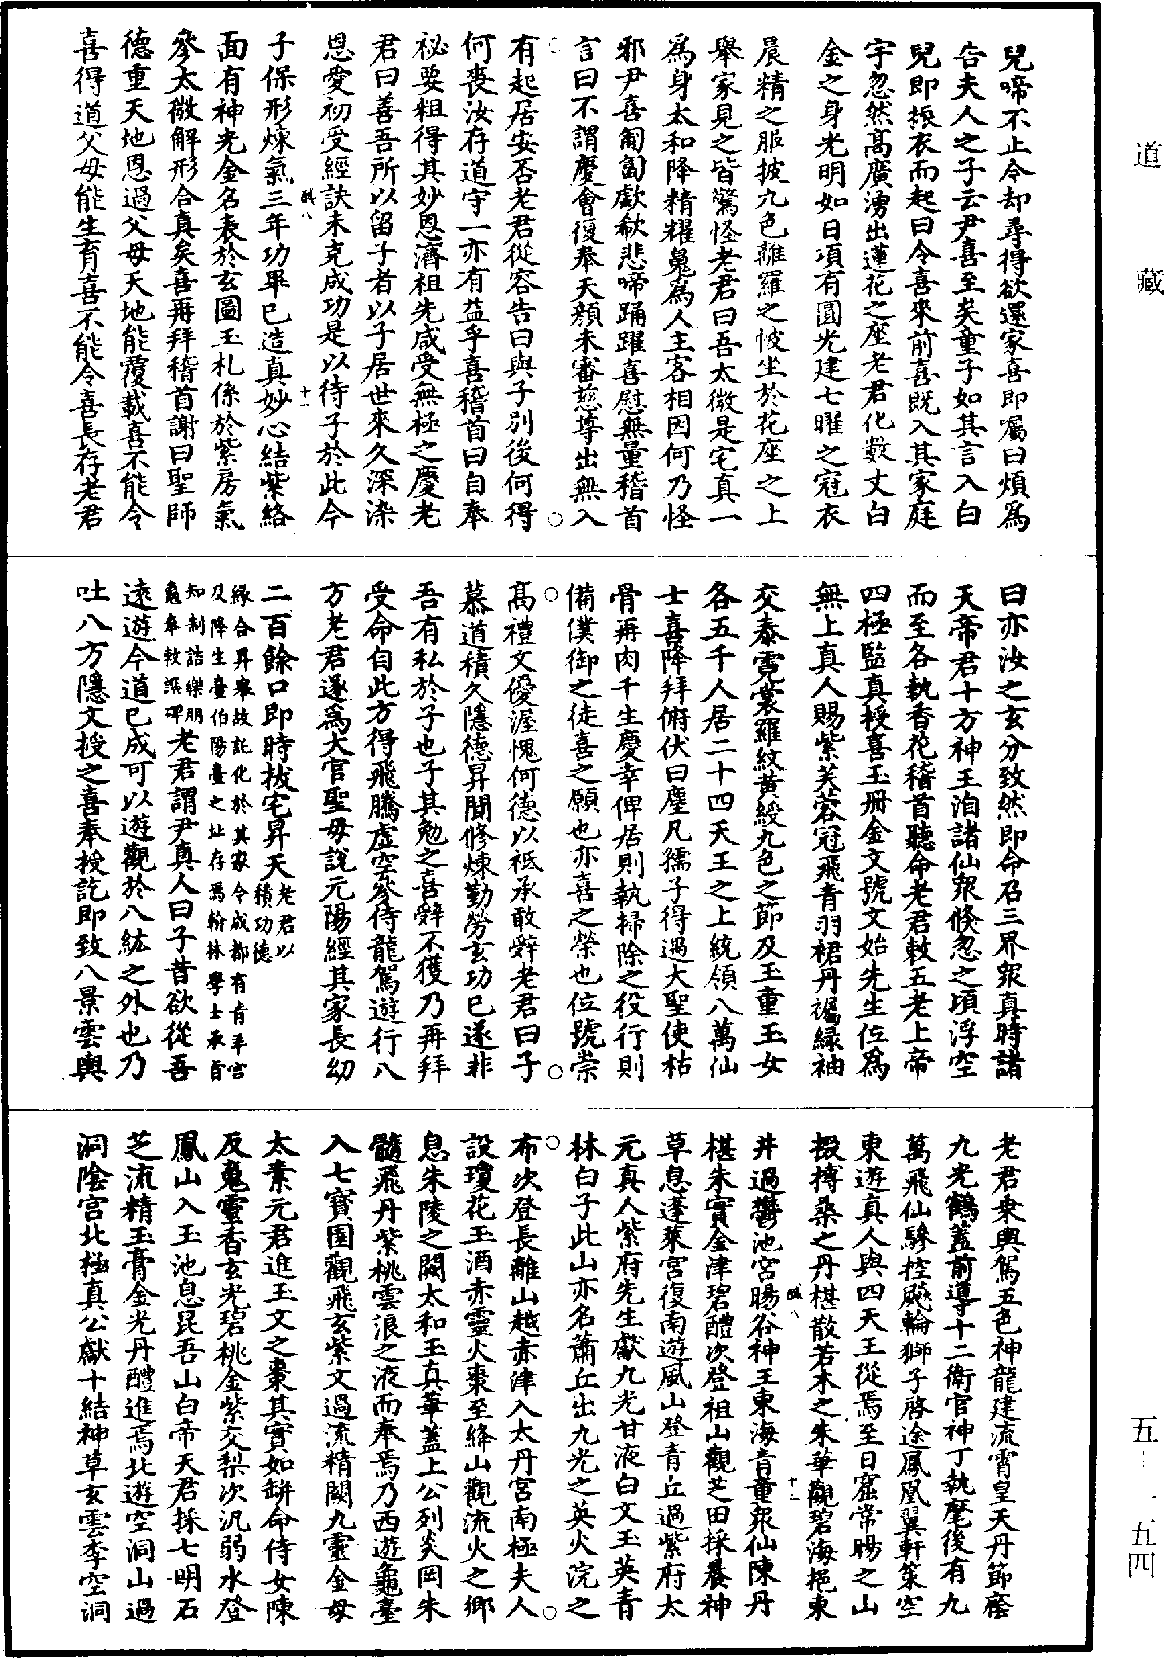 道藏
兒啼不止今却尋得欲還家喜即囑曰煩為
告夫人之子云尹喜至矣童子如其言入白
兒即振衣而起曰令喜來前喜既入其家庭
宇忽然高廣湧出蓮花之座老君化數丈白
金之身光明如日項有圓光建七曜之冠衣
晨精之服披九色離羅之帔坐於花座之上
舉家見之皆驚怪老君曰吾太微是宅真一
為身太和降精耀䰟為人主客相因何乃怪
邪尹喜匍匐歔欷悲啼踊躍喜慰無量稽首
言曰不謂慶會復奉天顏未審慈尊出無入
有起居安否老君從容告曰與子別後何得
何喪汝存道守一亦有益乎喜稽首曰自奉
祕要粗得其妙恩濟祖先咸受無極之慶老
君曰善吾所以留子者以子居世來久深染
恩愛初受經訣未克成功是以待子於此今
子保形煉氣三年功畢已造真妙心結紫絡
面有神光金名表於玄圖玉札係於紫房氣
參太微解形合真矣喜再拜稽首謝曰聖師
德重天地恩過父母天地能覆載喜不能令
喜得道父母能生育喜不能令喜長存老君
曰亦汝之玄分致然即命召三界眾真時諸
天帝君十方神王洎諸仙眾倏忽之頃浮空
而至各執香花稽首聽命老君敕五老上帝
四極監真授喜玉冊金文號文始先生位為
無上真人賜紫芙蓉冠飛青羽裙丹襡緑袖
交泰霓裳羅紋黄綬九色之節及玉童玉女
各五千人居二十四天王之上統領八萬仙
士喜降拜俯伏曰塵凡孺子得遇大聖使枯
骨再肉千生慶幸俾居則執掃除之役行則
備僕御之徒喜之願也亦喜之榮也位號崇
高禮文優渥愧何德以祗承敢辤老君曰子
慕道積久隱德昇聞修煉勤勞玄功已遂非
吾有私於子也子其勉之喜辤不獲乃再拜
受命自此方得飛騰虛空參侍龍駕遊行八
方老君遂為大官聖母說元陽經其家長幼
二百餘口即時拔宅昇天老君以積功德
緣合昇舉故託化於其家今成都有青羊宮
及降生臺伯陽臺之址存焉翰林學士承旨
知制誥樂朋
龜奉敕譔碑老君謂尹真人曰子昔欲從吾
遠遊今道已成可以遊觀於八紘之外也乃
吐八方隱文授之喜奉授訖即致八景雲輿
老君乘輿駕五色神龍建流霄皇天丹節䕃
九光鶴蓋前導十二衛官神丁執麾後有九
萬飛仙驂控飈輪獅子啓途鳳凰翼軒策空
東遊真人與四天王從焉至日窟常暘之山
掇搏桑之丹椹散若木之朱華觀碧海挹東
井過欝池宮暘谷神王東海青童眾仙陳丹
椹朱實金津碧醴次登祖山觀芝田採養神
草息蓬萊宮復南遊風山登青丘過紫府太
元真人紫府先生獻九光甘液白文玉英青
林白子此山亦名蕭丘出九光之英火浣之
布次登長離山越赤津入太丹宮南極夫人
設瓊花玉酒赤靈火棗至絳山觀流火之鄉
息朱陵之闕太和玉真華蓋上公列炎岡朱
髓飛丹紫桃雲浪之液而奉焉乃西遊龜臺
入七寶園觀飛玄紫文過流精闕九靈金母
太素元君進玉文之棗其實如缾命侍女陳
反䰟靈香玄光碧桃金紫交梨次汎弱水登
鳳山入玉池息昆吾山白帝天君採七明石
芝流精玉膏金光丹醴進焉北遊空洞山過
洞陰宮北極真公獻十結神草玄雲李空洞
五一五四